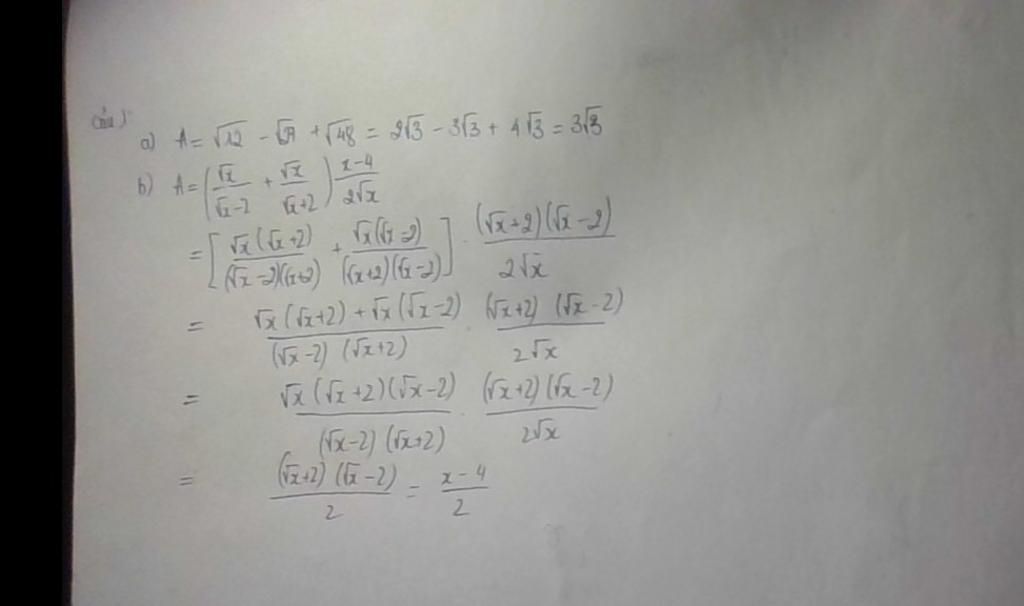 Câu 1:
a) A = √12 - √27 + √48 = 2√3 - 3√3 + 4√3 = 3√3
b) A = (√x/(√x-2) + √x/(√x+2)) (x-4)/(2√x)
= [√x(√x+2)/((√x-2)(√x+2)) + √x(√x-2)/((√x+2)(√x-2))] . (√x+2)(√x-2)/(2√x)
= (√x(√x+2) + √x(√x-2))/((√x-2)(√x+2)) . (√x+2)(√x-2)/(2√x)
= √x(√x+2)(√x-2)/((√x-2)(√x+2)) . (√x+2)(√x-2)/(2√x)
= (√x+2)(√x-2)/2 = (x-4)/2